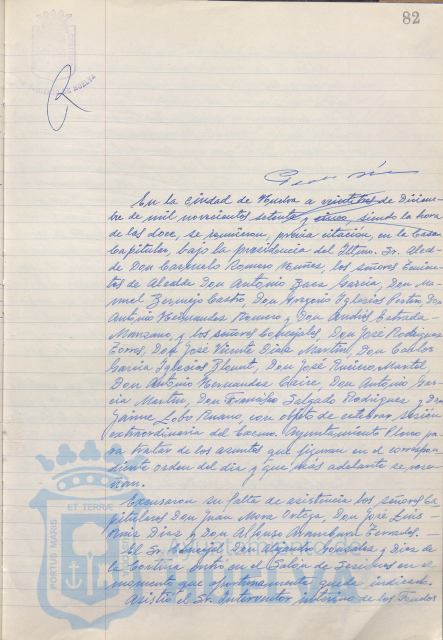 82
En la ciudad de Huelva a veintitres de Diciem-
bre de mil novecientos setenta y cinco, siendo la hora
de las doce, se reunieron, previa citación, en la Casa
Capitular, bajo la presidencia del Iltmo. Sr. Alcal-
de Don Carmelo Romero Núñez, los señores Tenien-
tes de Alcalde Don Antonio Baca García, Don Ma-
nuel Bermejo Castro, Don Gregorio Iglesias Don
Antonio Hernández Romero y Don Andrés Estrada
Manzano, y los señores Concejales, Don José Rodríguez
Torres, Don José Vicente Díaz Martín, Don Carlos
García Iglesias Don José Martel,
Don Antonio Hernández Don Antonio Gar-
cía Martín, Don Francisco Salgado Rodríguez y Don
Jaime Lobo Ruano, con objeto de celebrar sesión
extraordinaria del Excmo. Ayuntamiento Pleno pa-
ra tratar de los asuntos que figuran en el correspon-
diente orden del día y que más adelante se rese-
ñan.
Excusaron su falta de asistencia los señores Ca-
pitulares Don Juan Mora Ortega, Don José Luis
Ruiz Díaz y Don Alfonso Aramburu Terrades.
El Sr. Concejal Don Alejandro González y Díaz de
la Cortina entró en el Salón de Sesiones en el
momento que oportunamente queda indicado.
Asistió el Sr. Interventor interino de los Fondos
ET TERRAE
PORTUS MARIS